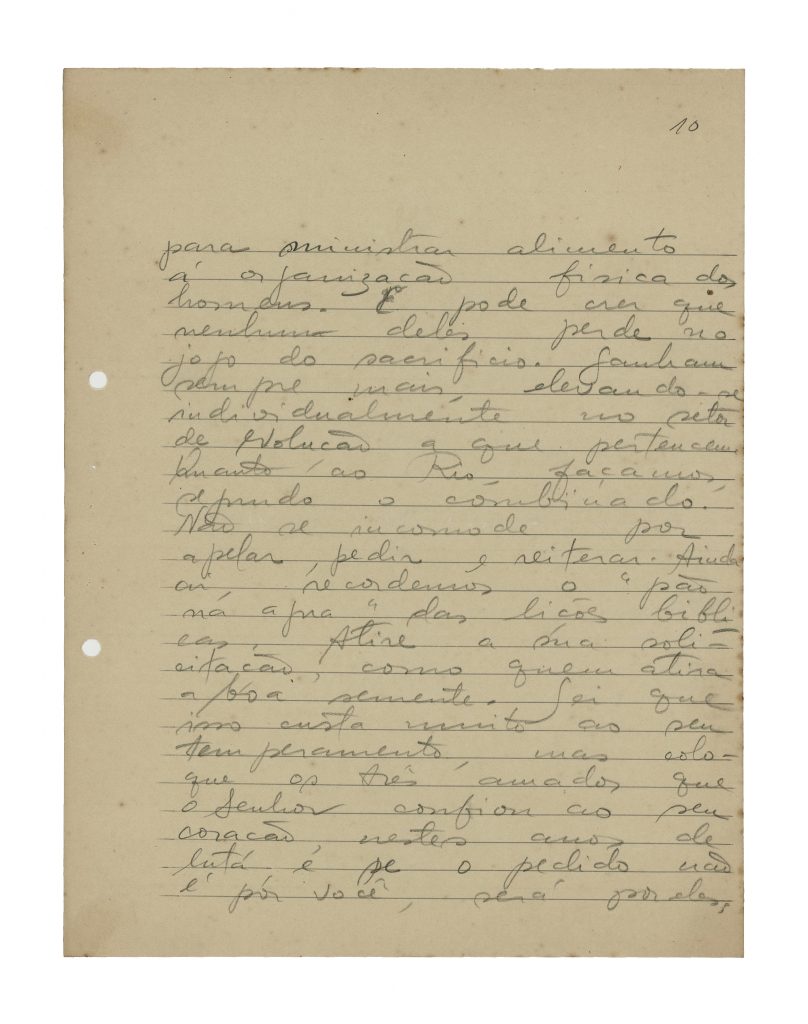 10
para ministrar alimento
á organização fisica dos
homens. E pode crer que
nenhum deles perde no
jogo do sacrificio. Ganham
sempre mais, elevando-se
individualmente no setor
de evolução a que pertencem.
Quanto ao Rio, façamos,
segundo o combinado.
Não se incomode por
apelar, pedir e reiterar. Ainda
aí, recordemos o "pão
na agua" das lições bibli
cas. Atire a sua soli-
citação, como quem atira
a boa semente. Sei que
isso custa muito ao seu
temperamento, mas colo-
que os três amados que
o Senhor confiou ao seu
coração, nestes anos de
luta é se o pedido não
é por você, será por eles,